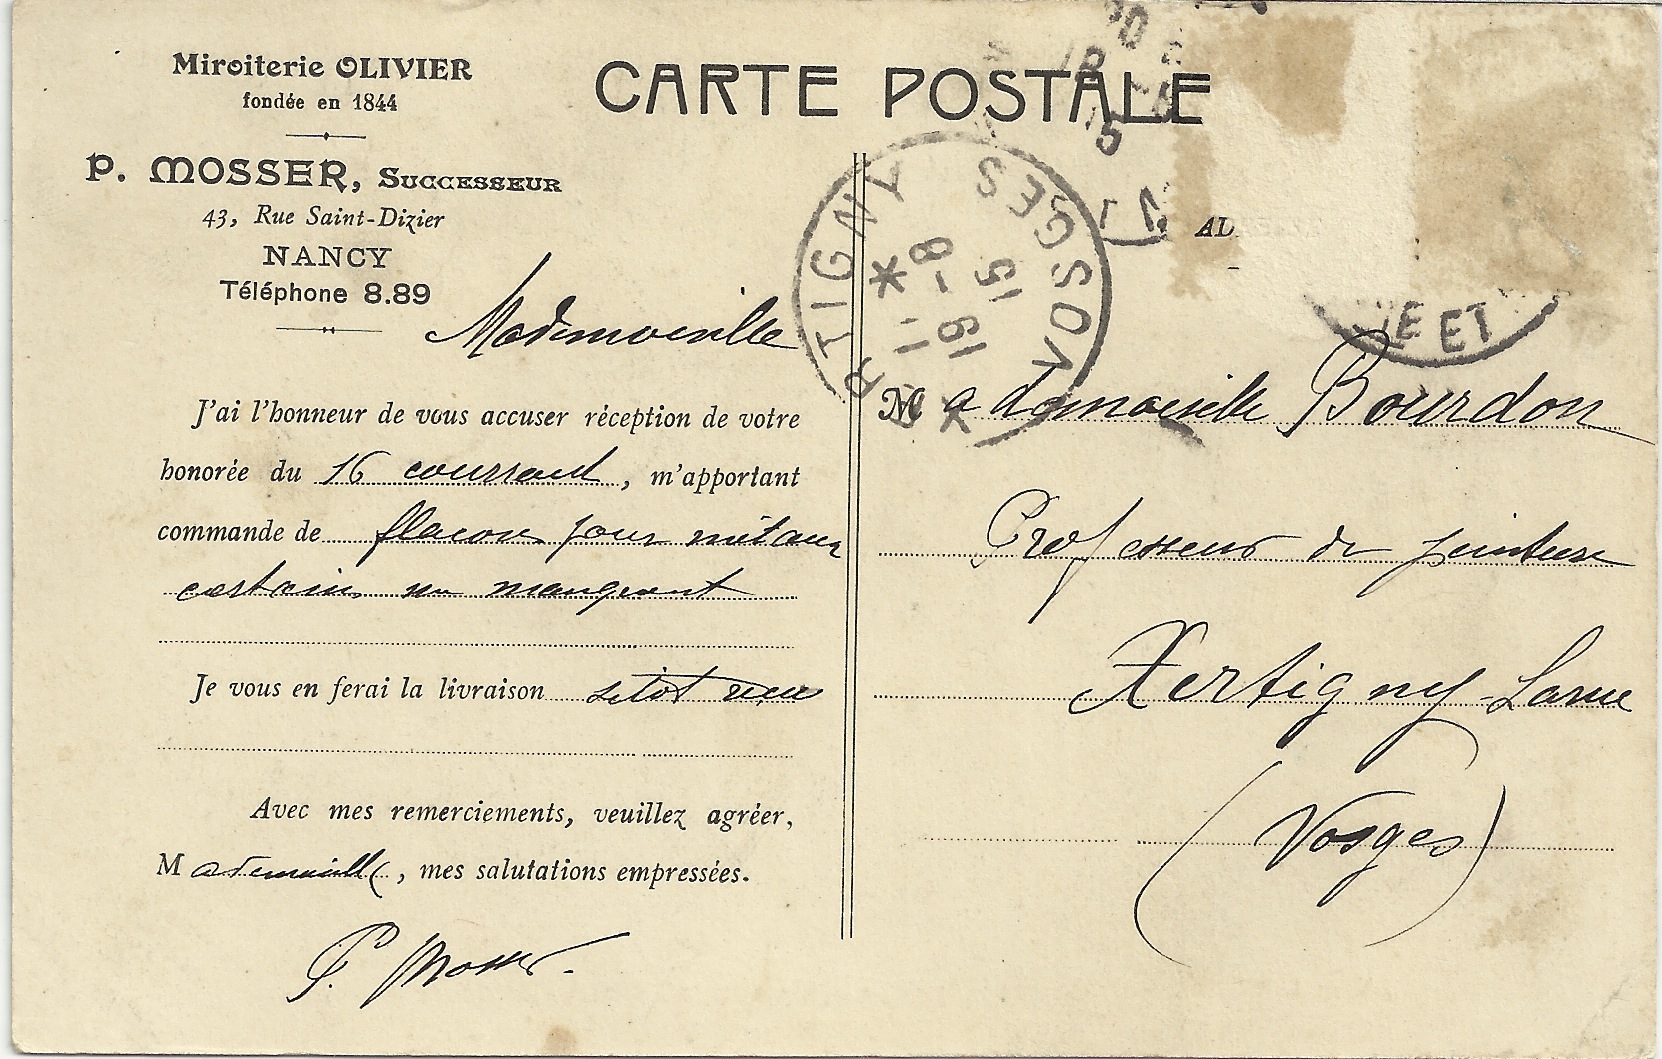 Miroiterie OLIVIER
fondée en 1844
P. MOSSER, SUCCESSEUR
43, Rue Saint-Dizier
NANCY
Téléphone 8.89
CARTE POSTALE
Mademoiselle
J'ai l'honneur de vous accuser réception de votre
honorée du 16 courrant, m'apportant
commande de flacons pour métaux
certains en manquant
Je vous en ferai la livraison sitôt reçu
Avec mes remerciements, veuillez agréer,
Mademoiselle, mes salutations empressées.
P. Mosser.
RTIGNY VOSGES
8 - 15
* 11 19
15
E ET
Mademoiselle Bourdon
Professeur de peinture
Xertigny-Larue
(Vosges)